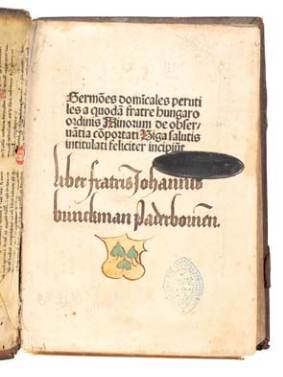 Sermões domĩcales peruti
les a quodã fratre hungaro
ordinis Minorum de obser-
uãtia cõportati Biga salutis
intitulati feliciter incipiũt
liber fratris Johannis
bunckman Paderbornen.